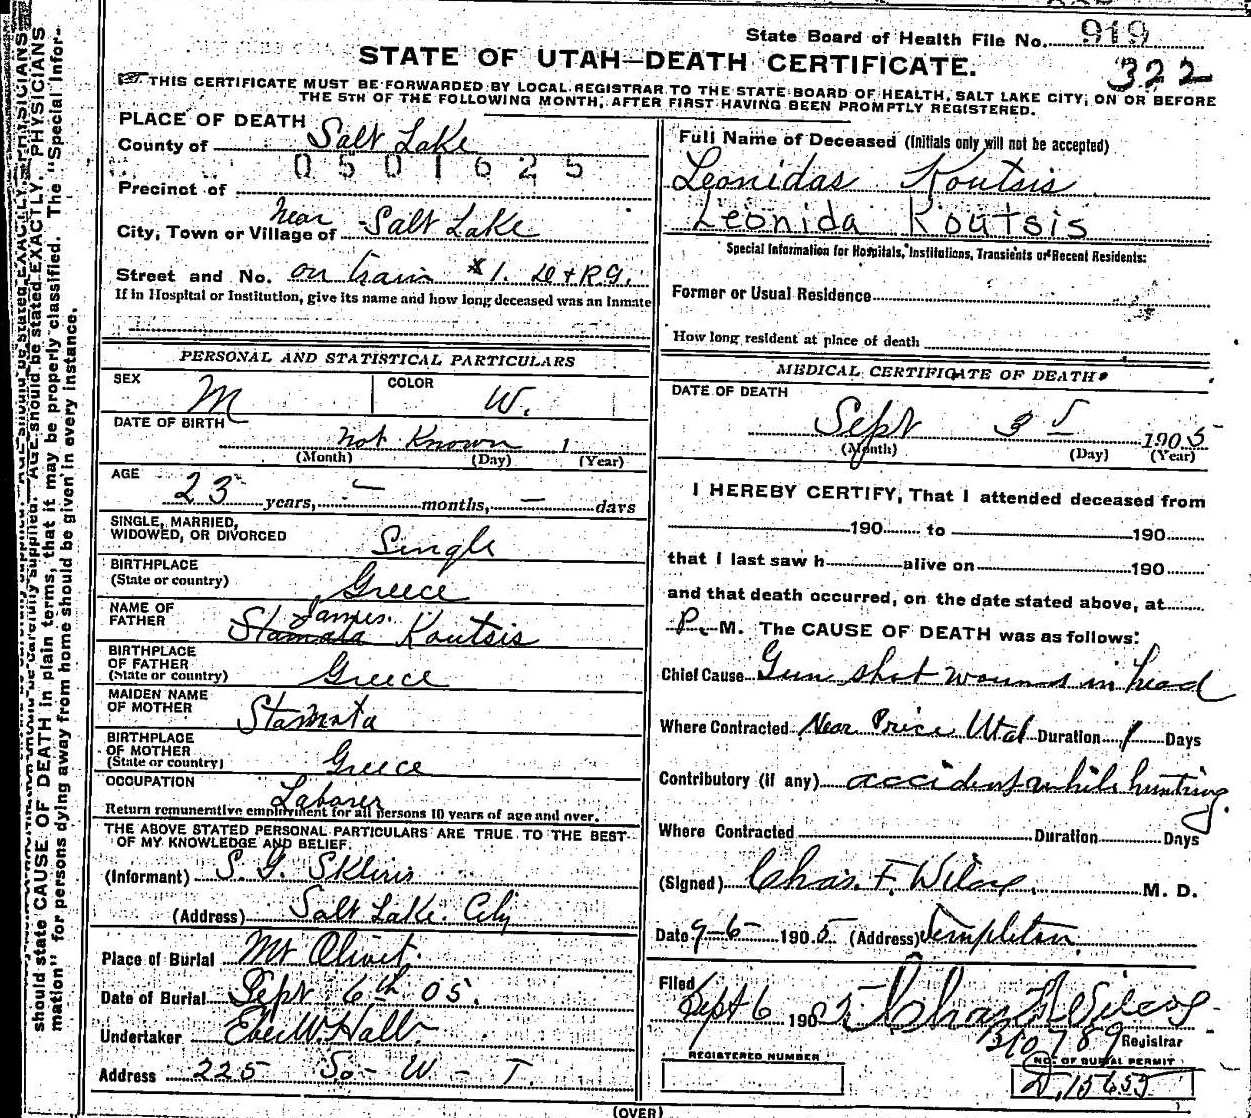 State Board of Health File No. 919
322
STATE OF UTAH—DEATH CERTIFICATE.
THIS CERTIFICATE MUST BE FORWARDED BY LOCAL REGISTRAR TO THE STATE BOARD OF HEALTH, SALT LAKE CITY, ON OR BEFORE
THE 5TH OF THE FOLLOWING MONTH, AFTER FIRST HAVING BEEN PROMPTLY REGISTERED.
PLACE OF DEATH
County of Salt Lake
0501625
Precinct of
City, Town or Village of near Salt Lake
Street and No. on train #1. D & R.G.
If in Hospital or Institution, give its name and how long deceased was an Inmate
PERSONAL AND STATISTICAL PARTICULARS
SEX M
COLOR W.
DATE OF BIRTH not Known 1
(Month) (Day) (Year)
AGE 23 years, — months, — days
SINGLE, MARRIED,
WIDOWED, OR DIVORCED Single
BIRTHPLACE
(State or country) Greece
NAME OF
FATHER James Stamata Koutsis
BIRTHPLACE
OF FATHER
(State or country) Greece
MAIDEN NAME
OF MOTHER Stamata
BIRTHPLACE
OF MOTHER
(State or country) Greece
OCCUPATION Laborer
Return remunerative employment for all persons 10 years of age and over.
THE ABOVE STATED PERSONAL PARTICULARS ARE TRUE TO THE BEST
OF MY KNOWLEDGE AND BELIEF.
(Informant) S. G. Skliris
(Address) Salt Lake City
Place of Burial Mt Olivet.
Date of Burial Sept 6th 05.
Undertaker Eber W. Hall
Address 225 So- W - T.
Full Name of Deceased (Initials only will not be accepted)
Leonidas Koutsis
Leonida Koutsis
Special Information for Hospitals, Institutions, Transients or Recent Residents:
Former or Usual Residence
How long resident at place of death
MEDICAL CERTIFICATE OF DEATH.
DATE OF DEATH
Sept 5 1905
(Month) (Day) (Year)
I HEREBY CERTIFY, That I attended deceased from
190 to 190
that I last saw h alive on 190
and that death occurred, on the date stated above, at
P. M. The CAUSE OF DEATH was as follows:
Chief Cause Gun shot wounds in head
Where Contracted Near Price Utah Duration 1 Days
Contributory (if any) accident while hunting.
Where Contracted Duration Days
(Signed) Chas. F. Wilcox. M. D.
Date 9-6- 1905 (Address) Templeton
Filed Sept 6 1905 Chas F. Wilcox
Registrar
B10789
REGISTERED NUMBER
NO. OF BURIAL PERMIT
D.15655
(OVER)
should state CAUSE OF DEATH in plain terms, that it may be properly classified. The "Special Infor-
mation" for persons dying away from home should be given in every instance.